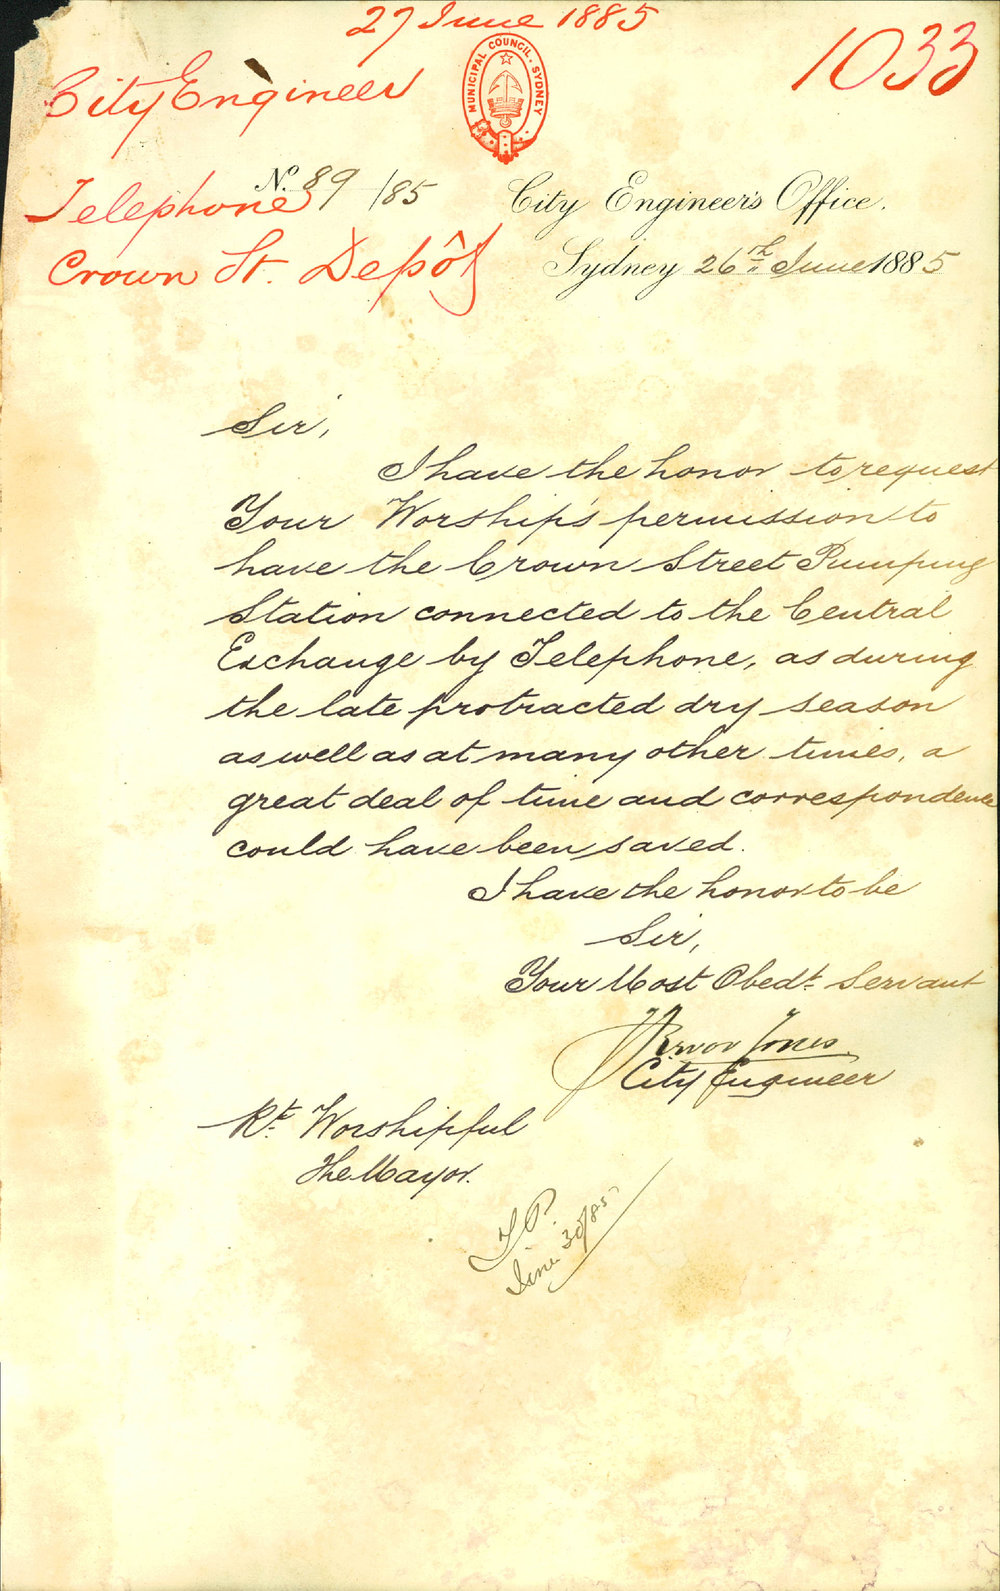 27 June 1885
1033
City Engineer
MUNICIPAL COUNCIL. SYDNEY
No. 89 /85
Telephone
Crown St. Depôt
City Engineer's Office.
Sydney 26th June 1885
Sir,
I have the honor to request
Your Worship's permission to
have the Crown Street Pumping
Station connected to the Central
Exchange by Telephone, as during
the late protracted dry season
as well as at many other times, a
great deal of time and correspondence
could have been saved.
I have the honor to be
Sir,
Your Most Obedt. Servant
Trevor Jones
City Engineer
Rt. Worshipful
The Mayor.
June 30/85